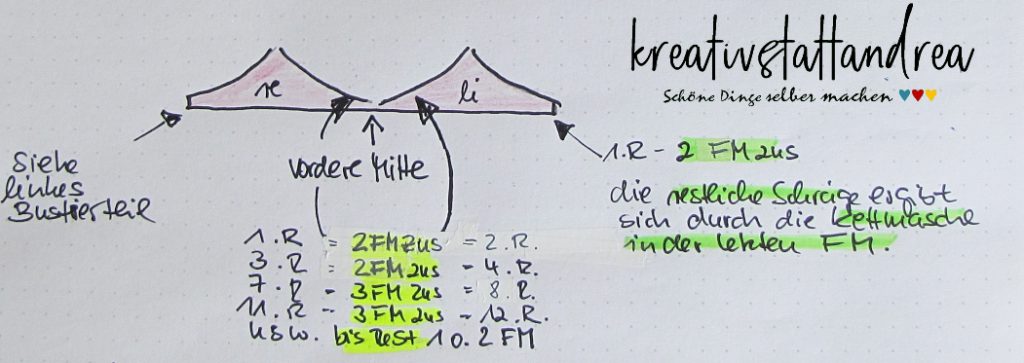 kreativstattandrea
Schöne Dinge selber machen
re
li
Siehe
linkes
Bustierteil
vordere Mitte
1.R - 2 FM zus
die restliche Schräge ergibt
sich durch die Kettmasche
in der letzten FM.
1.R = 2FM zus = 2.R.
3.R = 2FM zus - 4.R.
7.R - 3FM zus = 8.R.
11.R - 3FM zus - 12.R.
usw. bis Rest 1 o. 2 FM